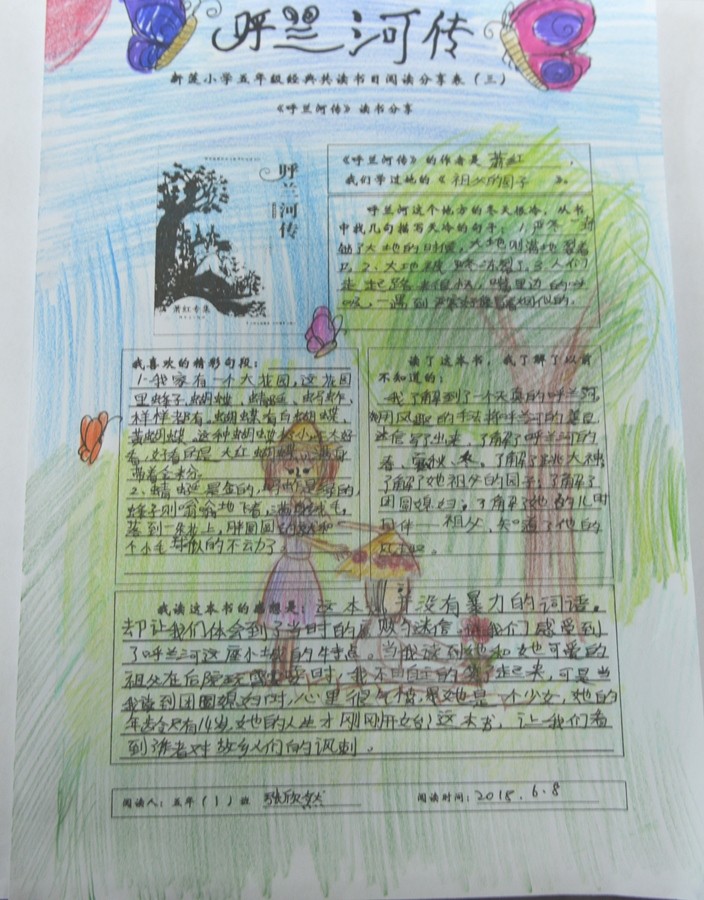 呼兰河传
新莲小学五年级经典共读书目阅读分享表（三）
《呼兰河传》读书分享
呼兰河传
萧红专集
《呼兰河传》的作者是 萧红 ，
我们学过她的《 祖父的园子 》。
呼兰河这个地方的冬天很冷，从书
中找几句描写天冷的句子。1.严冬一封
锁了大地的时候，大地则满地裂着
口。2、大地被 冻裂了。3.人们
走起路来很 ，嘴里边的呼
吸，一遇到严寒好像冒着烟似的。
我喜欢的精彩句段：
1.我家有一个大花园，这花园
里蜂子、蝴蝶、蜻蜓、蚂蚱，
样样都有。蝴蝶有白蝴蝶、
黄蝴蝶。这种蝴蝶极小，不太好
看。好看的是大红蝴蝶，满身
带着金粉。
2、蜻蜓是金的，蚂蚱是绿的，
蜂子则嗡嗡地飞着，满身绒毛，
落到一朵花上，胖圆圆的就和一
个小毛球似的不动了。
读了这本书，我了解了以前
不知道的：
我了解到了一个天真的呼兰河，
用风趣的手法将呼兰河的
写了出来，了解了呼兰河的
春、夏、秋、冬。了解了跳大神，
了解了她祖父的园子；了解了
团圆媳妇；了解了她的儿时
玩伴——祖父，知道了他的
我读这本书的感想是：这本 并没有暴力的词语，
却让我们体会到了当时的 与迷信，让我们感受到
了呼兰河这座小城的特点。当我读到她和她可爱的
祖父在后院 时，我不由自主的笑了起来，可是当
我读到团圆媳妇时，心里很气愤，她是一个少女，她的
年龄只有14岁，她的人生才刚刚开始！这本书，让我们看
到 者对故乡人们的讽刺。
阅读人：五年（1）班 张欣然
阅读时间：2018.6.8